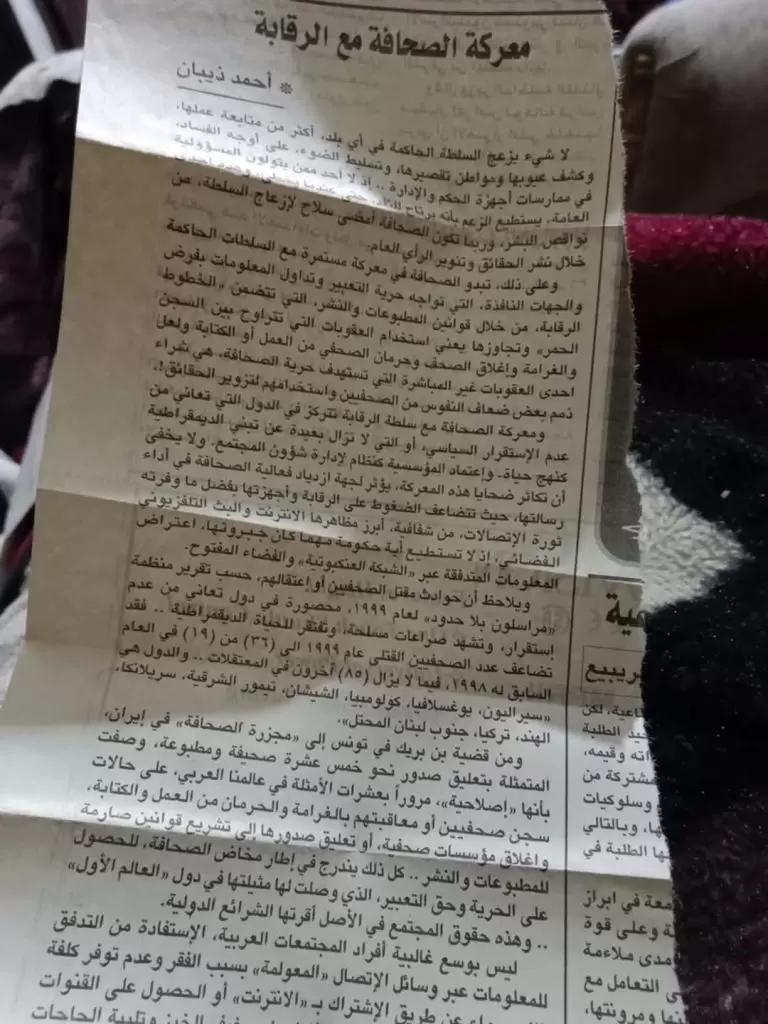 معركة الصحافة مع الرقابة
* أحمد ذيبان
لا شيء يزعج السلطة الحاكمة في أي بلد، أكثر من متابعة عملها،
وكشف عيوبها ومواطن تقصيرها، وتسليط الضوء، على أوجه الفساد،
في ممارسات أجهزة الحكم والإدارة .. إذ لا أحد ممن يتولون المسؤولية
العامة، يستطيع الزعم بأنه يرتاح للنقد، حتى عندما
نواقص البشر، وربما تكون الصحافة أمضى سلاح لإزعاج السلطة، من
خلال نشر الحقائق وتنوير الرأي العام.
وعلى ذلك، تبدو الصحافة في معركة مستمرة مع السلطات الحاكمة
والجهات النافذة، التي تواجه حرية التعبير وتداول المعلومات بفرض
الرقابة، من خلال قوانين المطبوعات والنشر، التي تتضمن «الخطوط
الحمر» وتجاوزها يعني استخدام العقوبات التي تتراوح بين السجن
والغرامة وإغلاق الصحف وحرمان الصحفي من العمل أو الكتابة ولعل
احدى العقوبات غير المباشرة التي تستهدف حرية الصحافة، هي شراء
ذمم بعض ضعاف النفوس من الصحفيين واستخدامهم لتزوير الحقائق!.
ومعركة الصحافة مع سلطة الرقابة تتركز في الدول التي تعاني من
عدم الإستقرار السياسي، أو التي لا تزال بعيدة عن تبني الديمقراطية
كنهج حياة، وإعتماد المؤسسية كنظام لإدارة شؤون المجتمع. ولا يخفى
أن تكاثر ضحايا هذه المعركة، يؤثر لجهة ازدياد فعالية الصحافة في أداء
رسالتها، حيث تتضاعف الضغوط على الرقابة وأجهزتها بفضل ما وفرته
ثورة الإتصالات، من شفافية، أبرز مظاهرها الانترنت والبث التلفزيوني
الفضائي، اذ لا تستطيع أية حكومة مهما كان جبروتها، اعتراض
المعلومات المتدفقة عبر «الشبكة العنكبوتية» والفضاء المفتوح.
ويلاحظ أن حوادث مقتل الصحفيين أو إعتقالهم، حسب تقرير منظمة
«مراسلون بلا حدود» لعام ١٩٩٩، محصورة في دول تعاني من عدم
إستقرار، وتشهد صراعات مسلحة، وتفتقر للحياة الديمقراطية .. فقد
تضاعف عدد الصحفيين القتلى عام ١٩٩٩ الى (٣٦) من (١٩) في العام
السابق له ١٩٩٨، فيما لا يزال (٨٥) آخرون في المعتقلات .. والدول هي
«سيراليون، يوغسلافيا، كولومبيا، الشيشان، تيمور الشرقية، سريلانكا،
الهند، تركيا، جنوب لبنان المحتل».
ومن قضية بن بريك في تونس إلى «مجزرة الصحافة» في إيران،
المتمثلة بتعليق صدور نحو خمس عشرة صحيفة ومطبوعة، وصفت
بأنها «إصلاحية»، مروراً بعشرات الأمثلة في عالمنا العربي، على حالات
سجن صحفيين أو معاقبتهم بالغرامة والحرمان من العمل والكتابة،
وإغلاق مؤسسات صحفية، أو تعليق صدورها إلى تشريع قوانين صارمة
للمطبوعات والنشر .. كل ذلك يندرج في إطار مخاض الصحافة، للحصول
على الحرية وحق التعبير، الذي وصلت لها مثيلتها في دول «العالم الأول»
.. وهذه حقوق المجتمع في الأصل أقرتها الشرائع الدولية.
ليس بوسع غالبية أفراد المجتمعات العربية، الإستفادة من التدفق
للمعلومات عبر وسائل الإتصال «المعولمة» بسبب الفقر وعدم توفر كلفة
عن طريق الإشتراك بـ «الانترنت» أو الحصول على القنوات
الخبز وتلبية الحاجات
ريبيع
اعية، لكن
يد الطلبة
اته وقيمه،
شتركة من
وسلوكيات
ها، وبالتالي
ها الطلبة في
معة في ابراز
ة وعلى قوة
مدى ملاءمة
ى التعامل مع
ها ومرونتها،